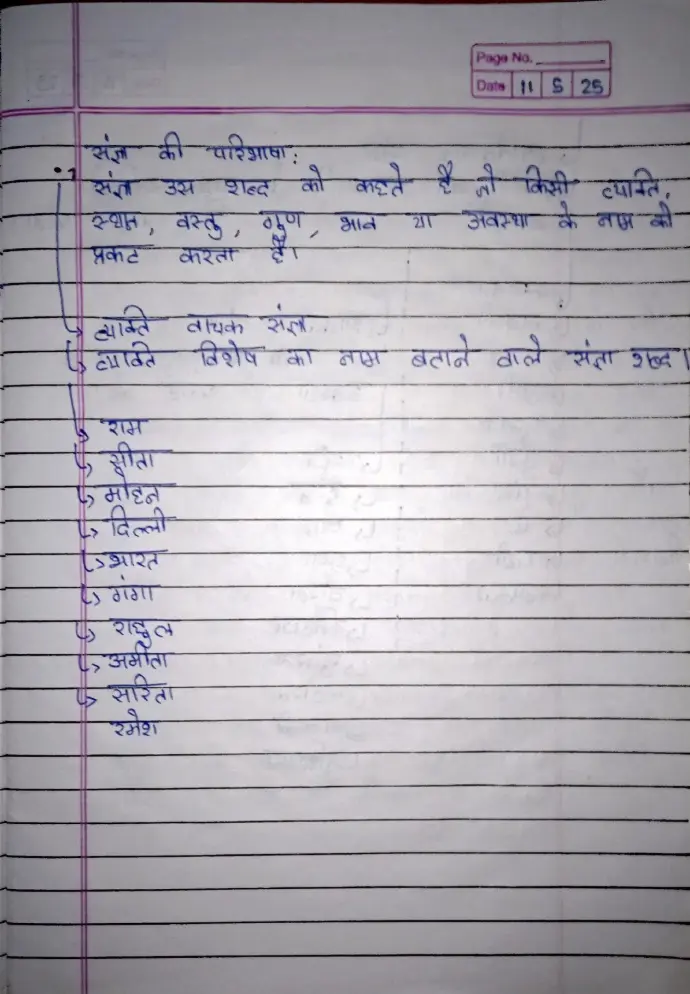 Page No.
Date 11 5 25
संज्ञा की परिभाषा:
संज्ञा उस शब्द को कहते है जो किसी व्यक्ति,
स्थान, वस्तु, गुण, भाव या अवस्था के नाम को
प्रकट करता है।
व्यक्ति वाचक संज्ञा
व्यक्ति विशेष का नाम बताने वाले संज्ञा शब्द।
राम
सीता
मोहन
दिल्ली
भारत
गंगा
राहुल
अमीता
सरिता
रमेश